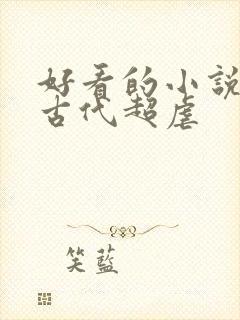 好看的小說
古代超虐
笑藍